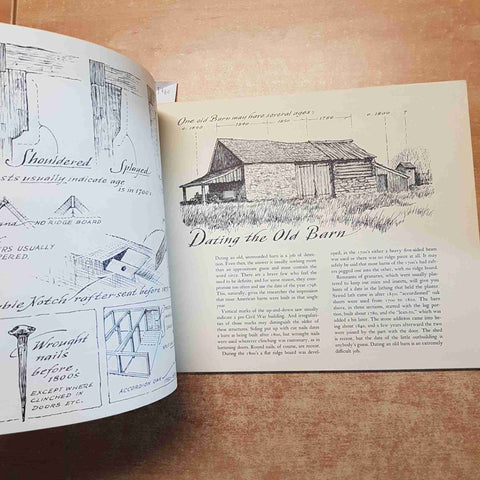 Shouldered
Splayed
sts usually indicate age
is in 1700's
and
NO RIDGE BOARD
ERS USUALLY
ERED.
ble Notch rafter seat before 18
Wrought
nails
before
1800's
EXCEPT WHERE
CLINCHED IN
DOORS ETC.
ACCORDION OAK
One old Barn may have several ages:
c. 1800
1780
c. 1800
Dating the Old Barn
Dating an old, unrestored barn is a job of detec-
tion. Even then, the answer is usually nothing more
than an approximate guess and must contain the
word circa. There are a brave few who feel the
need to be definite, and for some reason, they com-
promise most often and use the date of the year 1798.
This, naturally, gives the researcher the impression
that most American barns were built in that single
year.
Vertical marks of the up-and-down saw usually
indicate a pre-Civil War building. And irregulari-
ties of those marks may distinguish the strike of
these structures. Siding put up with cut nails dates
a barn as being built after 1800, but wrought nails
were used wherever clinching was customary, as in
battening doors. Round nails, of course, are recent.
During the 1800's a flat ridge board was devel-
oped, as the 1700's either a heavy five-sided beam
was used or there was no ridge piece at all. It may
safely be said that most barns of the 1700's had raft-
ers pegged out into the other, with no ridge board.
Remnants of granaries, which were usually plas-
tered to keep out rain and insects, will give you
hints of a date in the lathing that held the plaster.
Sawed lath came in after 1825; "accordioned" oak
sheets were used from 1700 to 1800. The barn
above, in three sections, started with the log por-
tion, built about 1780, and the "lean-to," which was
added a bit later. The stone addition came into be-
ing about 1840, and a few years afterward the two
were joined by the part with the door. The shed
is recent, but the date of the little outbuilding is
anybody's guess. Dating an old barn is an extremely
difficult job.